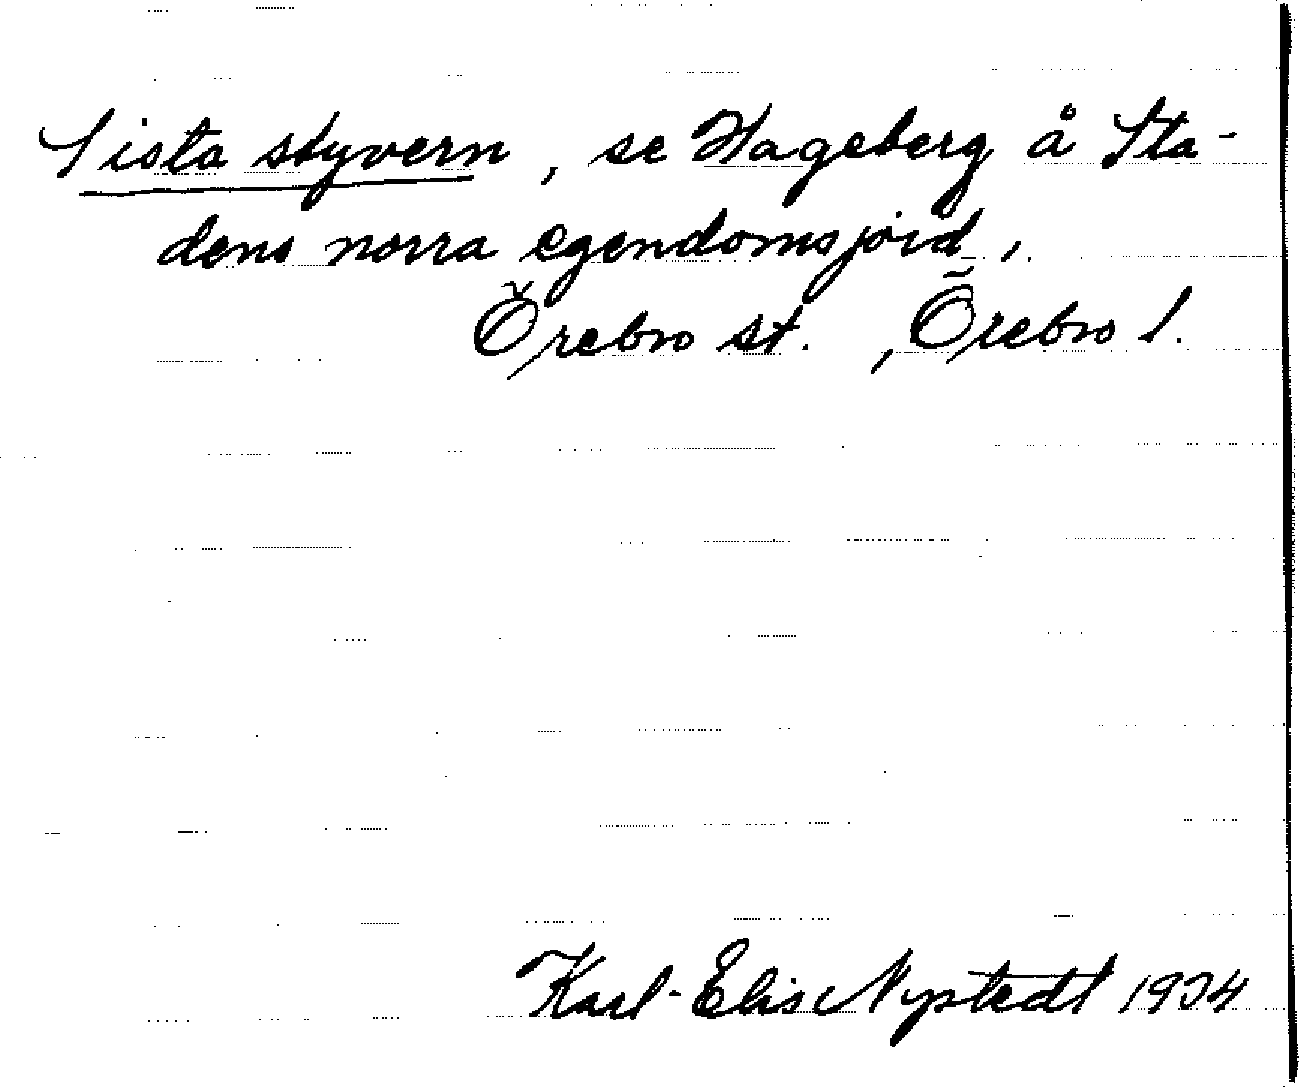 Sista styvern, se Hageberg å Sta-
dens norra egendomsjord,
Örebro st., Örebro l.
Karl-Elis Nystedt 1934